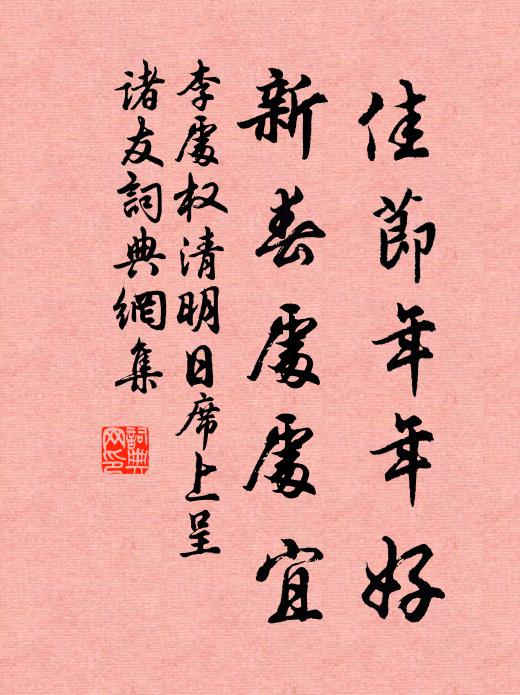 佳節年年好
新春處處宜
李處权清明日席上呈
诸友詞典網集
詞典网印